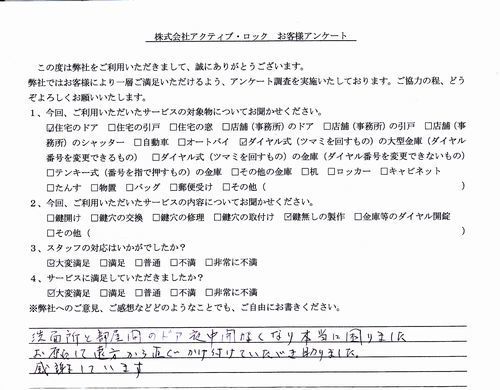 株式会社アクティブ・ロック お客様アンケート
この度は弊社をご利用いただきまして、誠にありがとうございます。
弊社ではお客様により一層ご満足いただけるよう、アンケート調査を実施いたしております。ご協力の程、どう
ぞよろしくお願いいたします。
1、今回、ご利用いただいたサービスの対象物についてお聞かせください。
☑住宅のドア □住宅の引戸 □住宅の窓 □店舗(事務所)のドア □店舗(事務所)の引戸 □店舗(事
務所)のシャッター □自動車 □オートバイ ☑ダイヤル式(ツマミを回すもの)の大型金庫(ダイヤル
番号を変更できるもの) □ダイヤル式(ツマミを回すもの)の金庫(ダイヤル番号を変更できないもの)
□テンキー式(番号を指で押すもの)の金庫 □その他の金庫 □机 □ロッカー □キャビネット
□たんす □物置 □バッグ □郵便受け □その他( )
2、今回、ご利用いただいたサービスの内容についてお聞かせください。
□鍵開け □鍵穴の交換 □鍵穴の修理 □鍵穴の取付け ☑鍵無しの製作 □金庫等のダイヤル開錠
□その他( )
3、スタッフの対応はいかがでしたか?
☑大変満足 □満足 □普通 □不満 □非常に不満
4、サービスに満足していただきましたか?
☑大変満足 □満足 □普通 □不満 □非常に不満
※弊社へのご意見、ご感想などどのようなことでも、ご自由にお書きください。
洗面所と部屋間のドア夜中開なくなり本当に困りました
遠方から直ぐかけ付けていただき助りました。
感謝しています